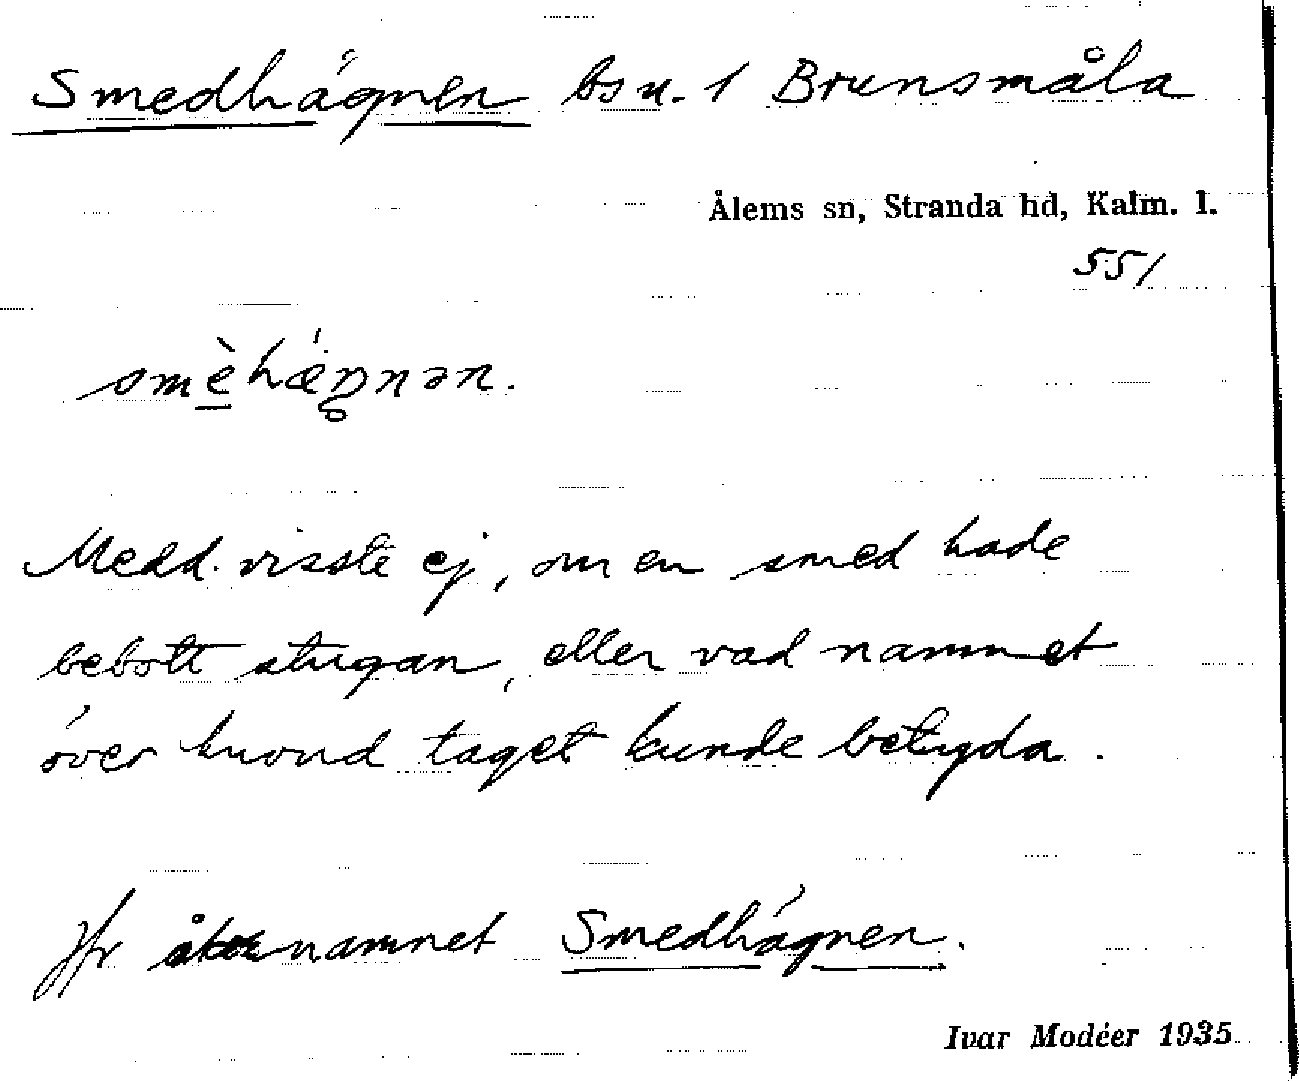 Smedhägnen bsn. 1 Brunsmåla
Ålems sn, Stranda hd, Kalm. l.
551
smèhǽŋnən.
Medd. visste ej, om en smed hade
bebott stugan, eller vad namnet
över huvud taget kunde betyda.
Jfr åkernamnet Smedhägnen.
Ivar Modéer 1935